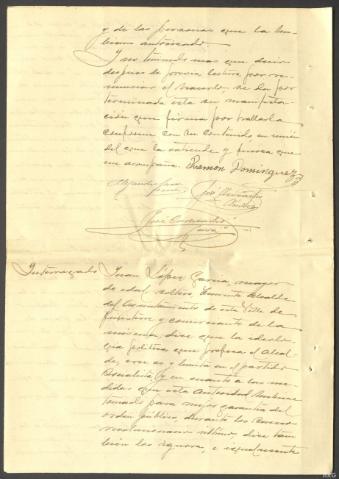 y de las personas que la hu-
biesen autorizado.
Y no teniendo mas que decir
despues de previa lectura por re-
nunciar el hacerlo se da por
terminada esta su manifesta-
ción que firma por hallarla
conforme con su contenido en unión
del que la extiende y fuerza que
me acompaña. Ramon Dominguez
José
Interrogado Juan López Garcia, mayor
de edad soltero, teniente Alcalde
del Ayuntamiento de esta Villa de
y comerciante de la
misma dice que la ideolo-
gia politica que profesa el Alcal-
de, cree es y milita en el partido
Socialista y en cuanto a las me-
didas que esta Autoridad hubiese
tomado para mejor garantia del
orden público, durante los sucesos
revolucionarios ultimos, dice tam-
bien los ignora, e igualmente